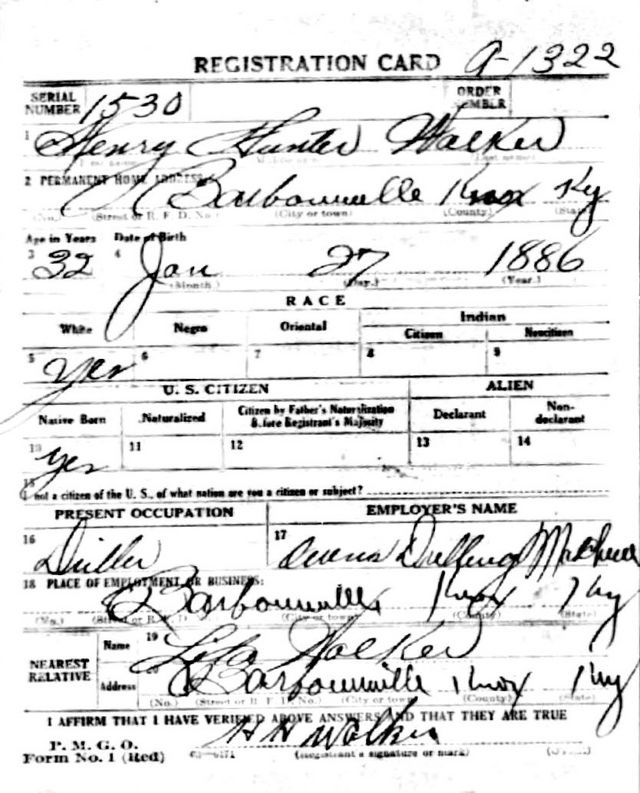 REGISTRATION CARD A-1322
SERIAL NUMBER 1530 ORDER NUMBER
1 Henry Hunter Walker
(Last name)
2 PERMANENT HOME ADDRESS:
Barbourville Knox Ky
(No.) (Street or R. F. D. No.) (City or town) (County) (State)
Age in Years Date of Birth
3 32 4 Jan 27 1886
(Month.) (Day.) (Year.)
RACE
White Negro Oriental Indian
Citizen Noncitizen
5 Yes 6 7 8 9
U. S. CITIZEN ALIEN
Native Born Naturalized Citizen by Father's Naturalization Before Registrant's Majority Declarant Non-declarant
10 Yes 11 12 13 14
15
If not a citizen of the U. S., of what nation are you a citizen or subject?
PRESENT OCCUPATION EMPLOYER'S NAME
16 Driller 17 Owens Drilling
18 PLACE OF EMPLOYMENT OR BUSINESS:
Barbourville Knox Ky
(No.) (Street or R. F. D. No.) (City or town) (County) (State)
NEAREST RELATIVE
Name 19 Walker
Address 20 Barbourville Knox Ky
(No.) (Street or R. F. D. No.) (City or town) (County) (State)
I AFFIRM THAT I HAVE VERIFIED ABOVE ANSWERS AND THAT THEY ARE TRUE
P. M. G. O.
Form No. 1 (Red) H H Walker
(Registrant's signature or mark)